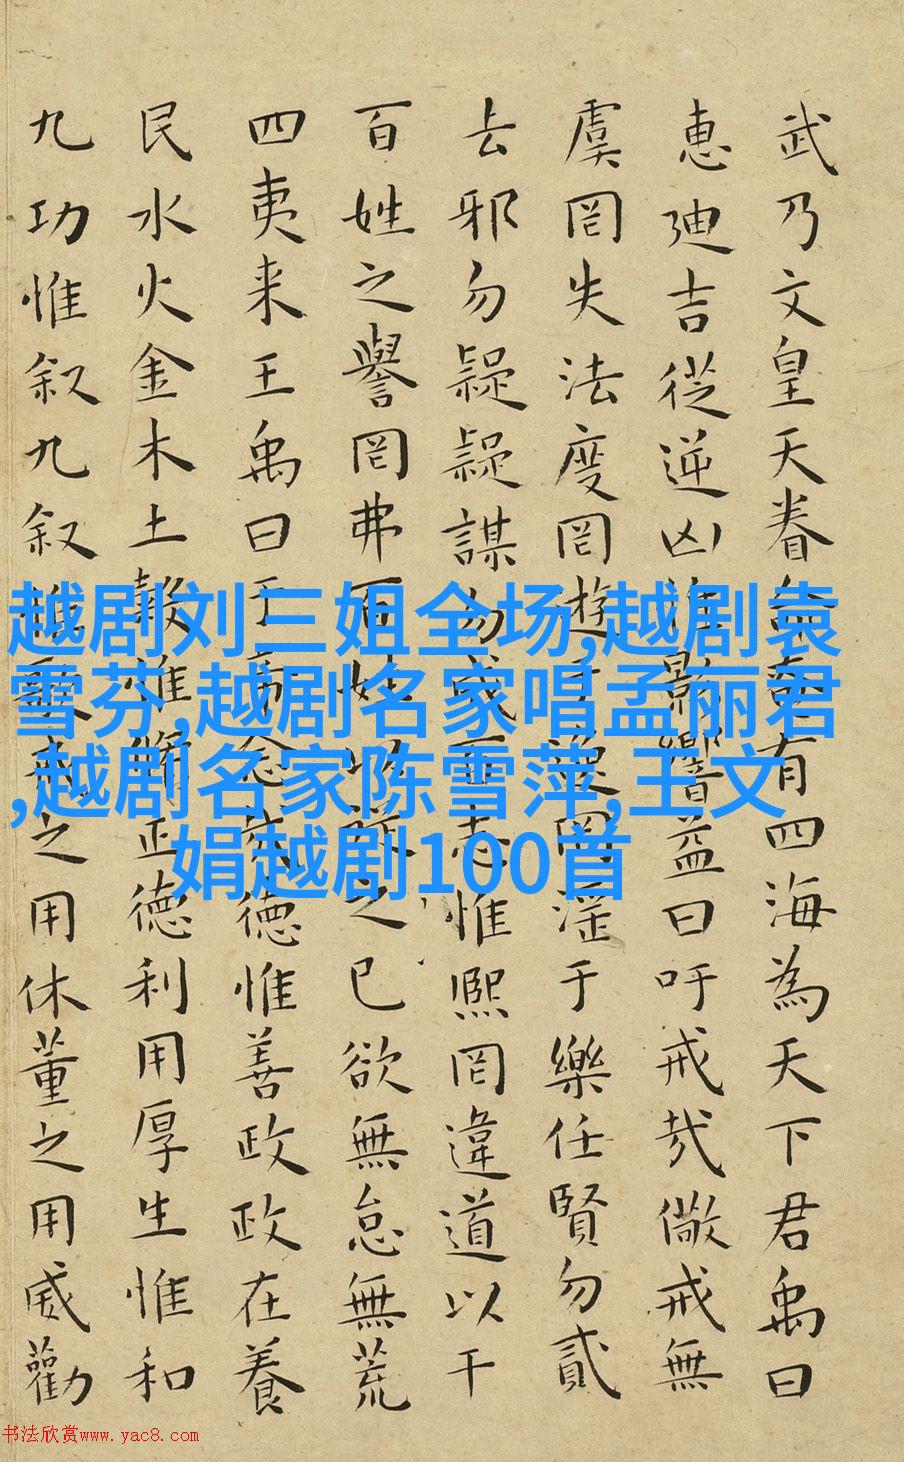 武乃文皇天眷命奄有四海為天下君禹曰
惠迪吉從逆凶惟影響益曰吁戒哉儆戒無
虞罔失法度罔遊于逸罔淫于樂任賢勿貳
去邪勿疑疑謀勿成百志惟熙罔違道以干
百姓之譽罔弗百姓以從之已欲無怠無荒
四夷来王禹曰于帝念哉德惟善政政在養
民水火金木土穀惟脩正德利用厚生惟和
九功惟叙九叙惟歌戒之用休董之用威勸
越剧刘三姐全场,越剧袁
雪芬,越剧名家唱孟丽君
,越剧名家陈雪萍,王文
娟越剧100首
书法欣赏www.yac8.com